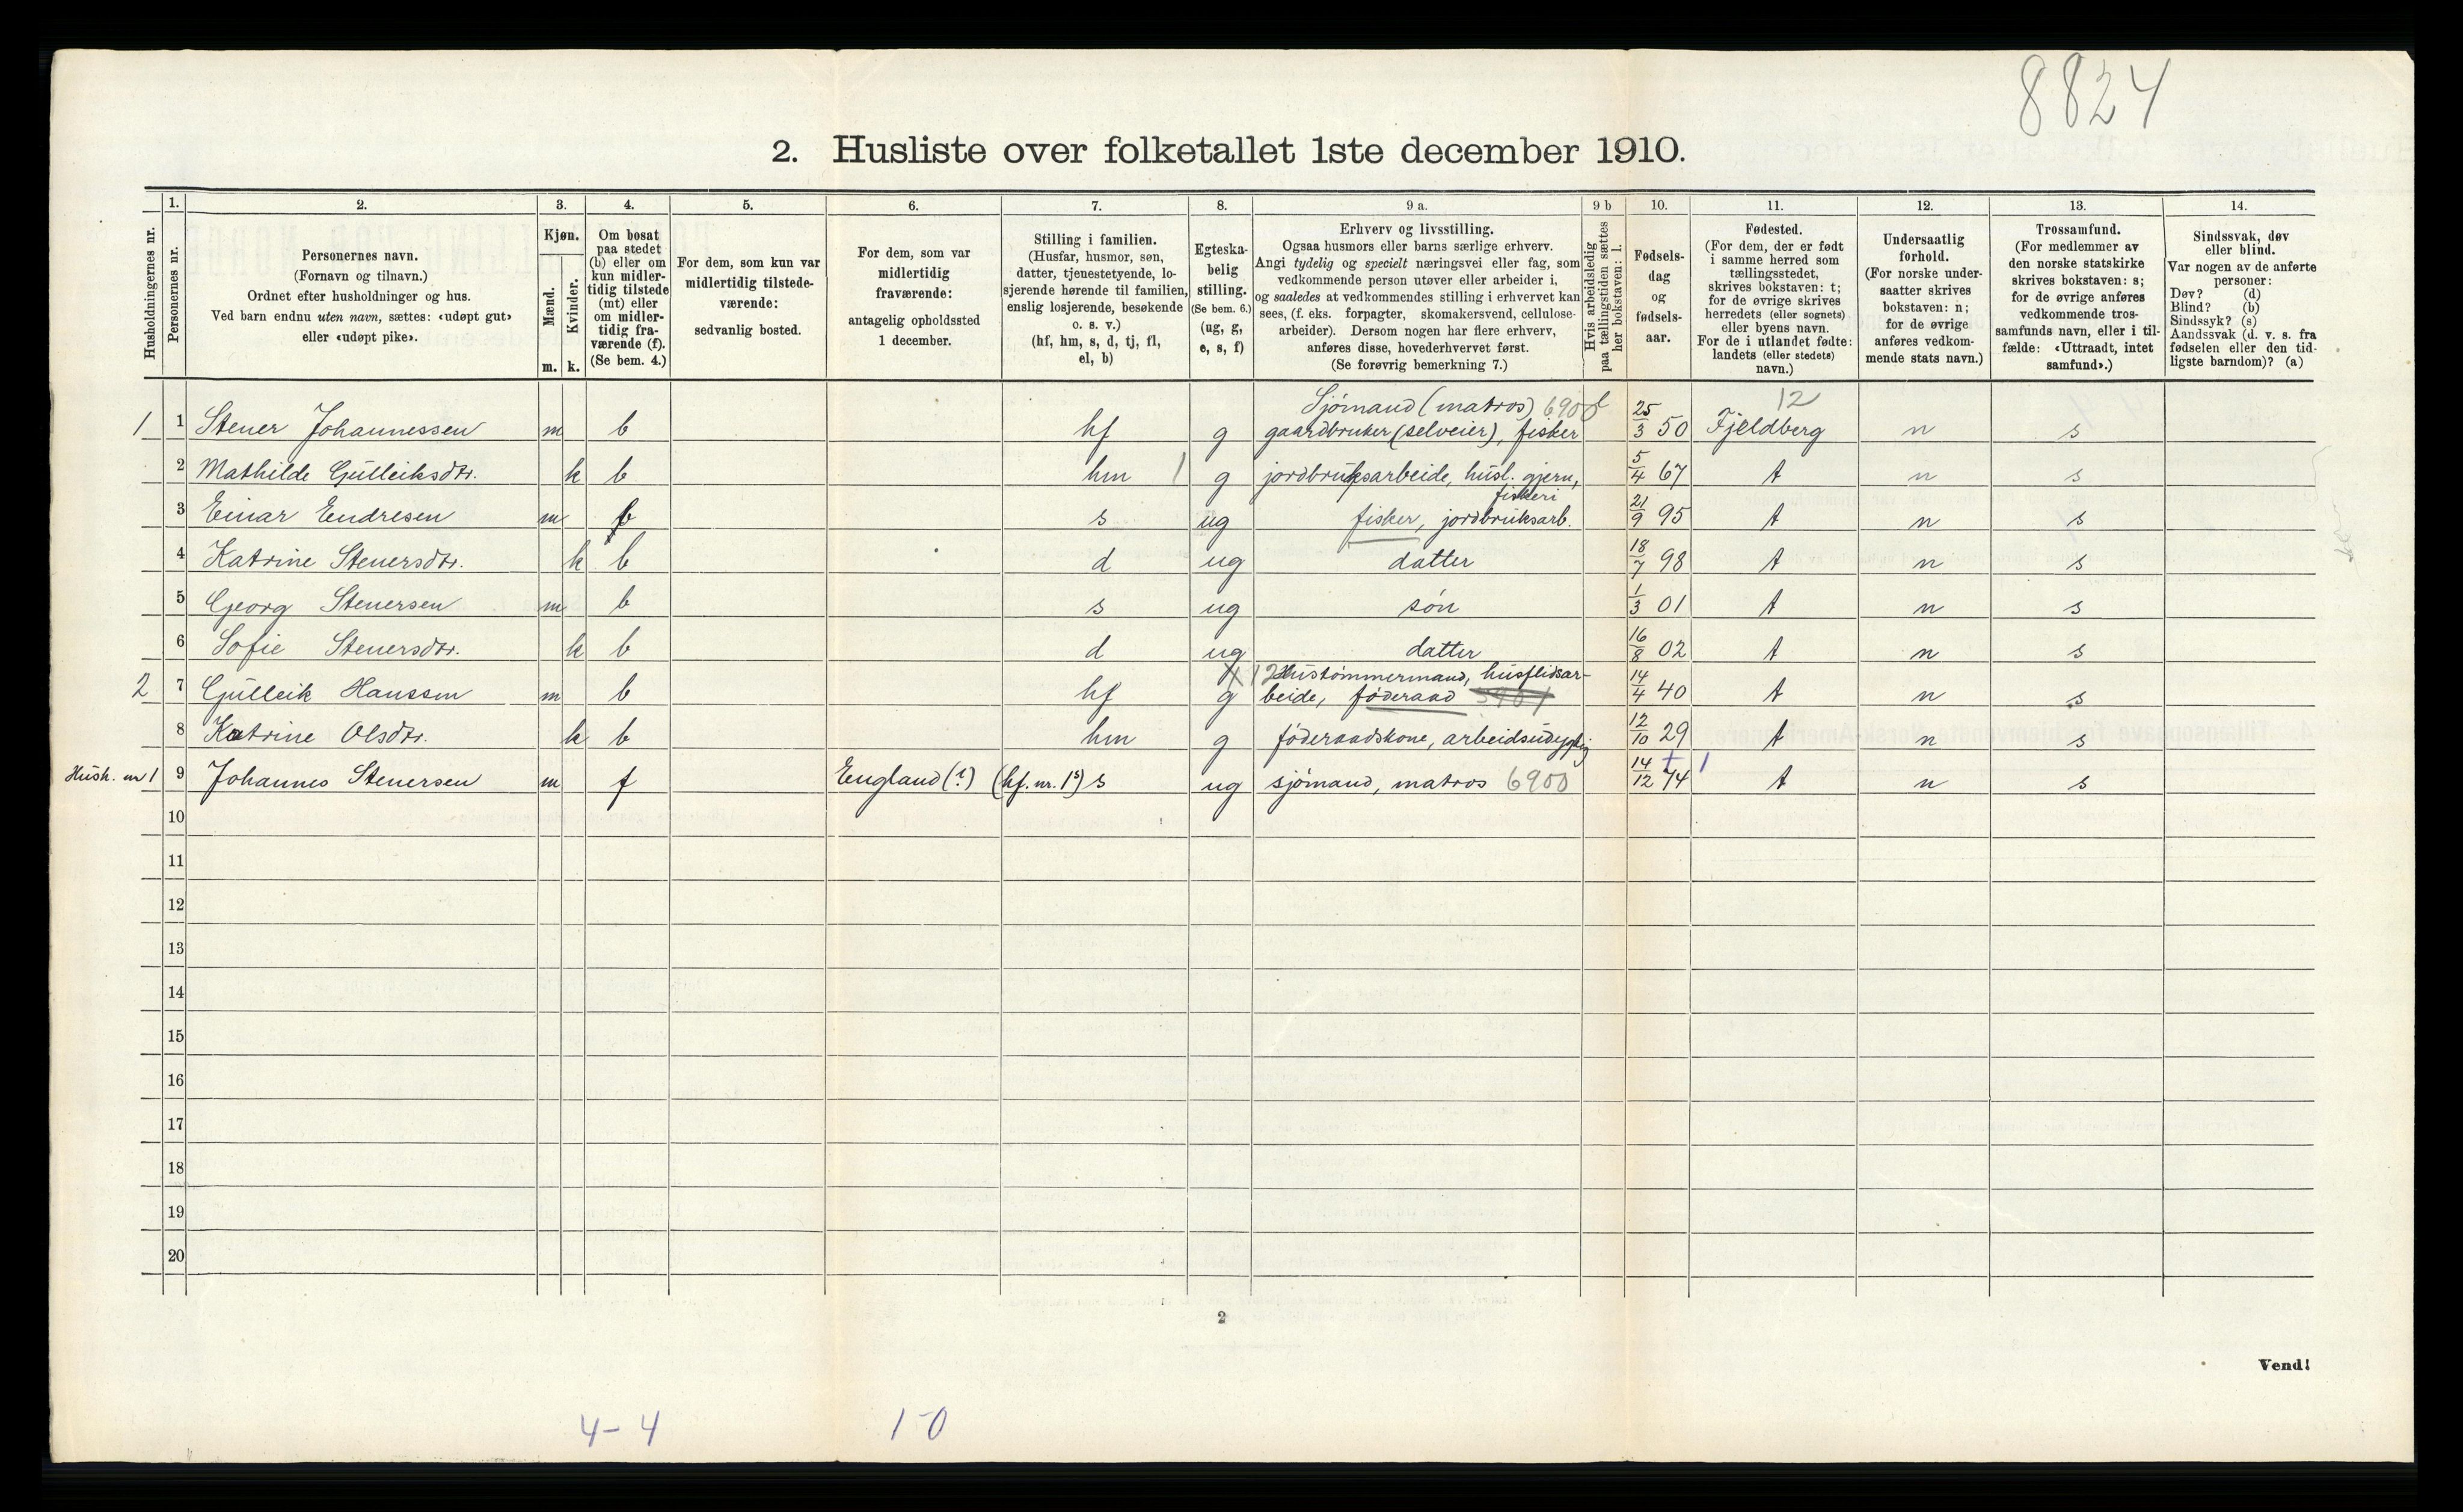 8824
2. Husliste over folketallet 1ste december 1910.
Husholdningernes nr.
1. Personernes nr.
2. Personernes navn.
(Fornavn og tilnavn.)
Ordnet efter husholdninger og hus.
Ved barn endnu uten navn, sættes: «udøpt gut»
eller «udøpt pike».
3. Kjøn.
Mænd. Kvinder.
m. k.
4. Om bosat
paa stedet
(b) eller om
kun midler-
tidig tilstede
(mt) eller
om midler-
tidig fra-
værende (f).
(Se bem. 4.)
5. For dem, som kun var
midlertidig tilstede-
værende:
sedvanlig bosted.
6. For dem, som var
midlertidig
fraværende:
antagelig opholdssted
1 december.
7. Stilling i familien.
(Husfar, husmor, søn,
datter, tjenestetyende, lo-
sjerende hørende til familien,
enslig losjerende, besøkende
o. s. v.)
(hf, hm, s, d, tj, fl,
el, b)
8. Egteska-
belig
stilling.
(Se bem. 6.)
(ug, g,
e, s, f)
9 a. Erhverv og livsstilling.
Ogsaa husmors eller barns særlige erhverv.
Angi tydelig og specielt næringsvei eller fag, som
vedkommende person utøver eller arbeider i,
og saaledes at vedkommendes stilling i erhvervet kan
sees, (f. eks. forpagter, skomakersvend, cellulose-
arbeider). Dersom nogen har flere erhverv,
anføres disse, hovederhvervet først.
(Se forøvrig bemerkning 7.)
9 b Hvis arbeidsledig
paa tællingstiden sættes
her bokstaven: l.
10. Fødsels-
dag
og
fødsels-
aar.
11. Fødested.
(For dem, der er født
i samme herred som
tællingsstedet,
skrives bokstaven: t;
for de øvrige skrives
herredets (eller sognets)
eller byens navn.
For de i utlandet fødte:
landets (eller stedets)
navn.)
12. Undersaatlig
forhold.
(For norske under-
saatter skrives
bokstaven: n;
for de øvrige
anføres vedkom-
mende stats navn.)
13. Trossamfund.
(For medlemmer av
den norske statskirke
skrives bokstaven: s;
for de øvrige anføres
vedkommende tros-
samfunds navn, eller i til-
fælde: «Uttraadt, intet
samfund».)
14. Sindssvak, døv
eller blind.
Var nogen av de anførte
personer:
Døv? (d)
Blind? (b)
Sindssyk? (s)
Aandssvak (d. v. s. fra
fødselen eller den tid-
ligste barndom)? (a)
Sjömand (matros) 6900 12
1 1 Stener Johannessen m b hf g gaardbruker (selveier), fisker 25/3 50 Fjeldberg n s
2 Mathilde Gulleiksdtr. k b hm 1 g jordbruksarbeide, husl. gjern, 5/4 67 t n s
fiskeri
3 Einar Endresen m b s ug fisker, jordbruksarb. 21/9 95 t n s
4 Katrine Stenersdtr. k b d ug datter 18/7 98 t n s
5 Georg Stenersen m b s ug søn 1/3 01 t n s
6 Sofie Stenersdtr. k b d ug datter 16/8 02 t n s
Hustømmermand, husflidsar-
2 7 Gulleik Hanssen m b hf g beide, føderaad 14/4 40 t n s
8 Katrine Olsdtr. k b hm g føderaadskone, arbeidsudygtig 12/10 29 t n s
Hush. nr 1 9 Johannes Stenersen m f England (?) (hf. nr. 1s) s ug sjömand, matros 6900 14/12 74 t n s
10
11
12
13
14
15
16
17
18
19
20
2
Vend!
4-4 1-0